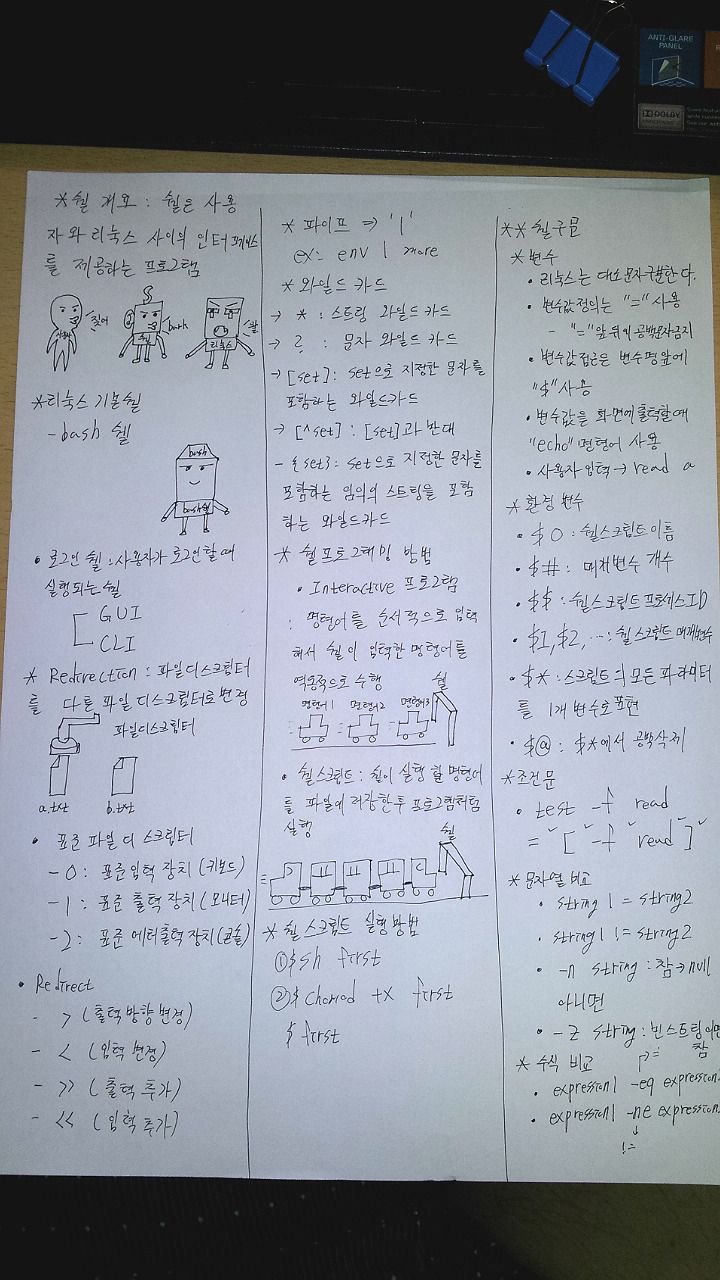 ANTI-GLARE
PANEL
DOLBY
*쉘 개요 : 쉘은 사용
자와 리눅스 사이의 인터페이스
를 제공하는 프로그램
짖어
bark
쉘
리눅스
왈
*리눅스 기본쉘
-bash 쉘
bash
bash쉘
• 로그인 쉘 : 사용자가 로그인할때
실행되는 쉘
GUI
CLI
* Redirection : 파일디스크립터
를 다른 파일 디스크립터로 변경
파일디스크립터
a.txt b.txt
• 표준 파일 디스크립터
-0 : 표준입력 장치 (키보드)
-1 : 표준 출력 장치 (모니터)
-2 : 표준 에러출력 장치(콘솔)
• Redirect
- > (출력방향 변경)
- < (입력 변경)
- >> (출력 추가)
- << (입력 추가)
* 파이프 => '|'
ex: env | more
* 와일드 카드
→ * : 스트링 와일드 카드
→ ? : 문자 와일드 카드
→ [set] : set으로 지정한 문자를
포함하는 와일드카드
→ [^set] : [set]과 반대
- {set} : set으로 지정한 문자를
포함하는 임의의 스트링을 포함
하는 와일드카드
* 쉘 프로그래밍 방법
• Interactive 프로그램
: 명령어를 순서적으로 입력
해서 쉘이 입력한 명령어를
역동적으로 수행
쉘
명령어1 명령어2 명령어3
• 쉘스크립트 : 쉘이 실행 할 명령어
를 파일에 저장한후 프로그램처럼
실행
쉘
* 쉘 스크립트 실행방법
①$sh first
②$ chomod +x first
$ first
** 쉘구문
* 변수
• 리눅스는 대소문자구분한다.
• 변수값정의는 "=" 사용
- "="앞뒤에 공백문자금지
• 변수값접근은 변수명앞에
"$"사용
• 변수값을 화면에출력할때
"echo"명령어 사용
• 사용자입력→ read a
* 환경 변수
• $0 : 쉘스크립트이름
• $# : 매개변수 개수
• $$ : 쉘스크립트프로세스ID
• $1,$2, ... : 쉘스크립트 매개변수
• $* : 스크립트의 모든 파라미터
를 1개 변수로 표현
• $@ : $*에서 공백삭제
*조건문
• test -f read
= ˅[˅-f˅read˅]˅
* 문자열 비교
• string1 = string2
• string1 != string2
• -n string : 참→null
아니면
• -z string : 빈스트링이면
참
* 수식 비교
=
• expression1 -eq expression2
• expression1 -ne expression2
!=